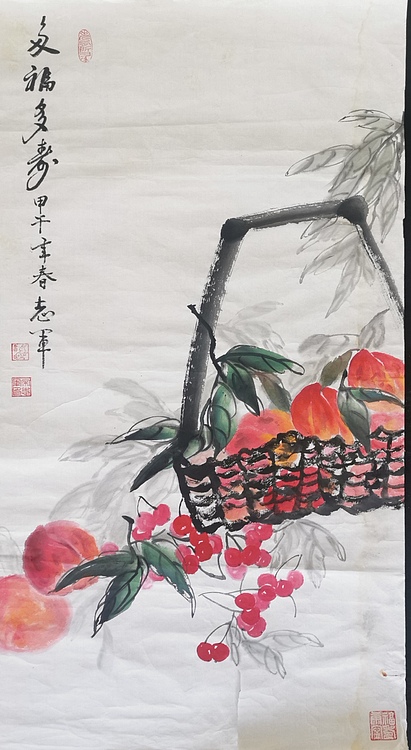 多福多寿
甲午年春志軍